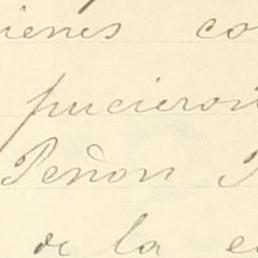 ienes co
pucieron
Peñon
de la e